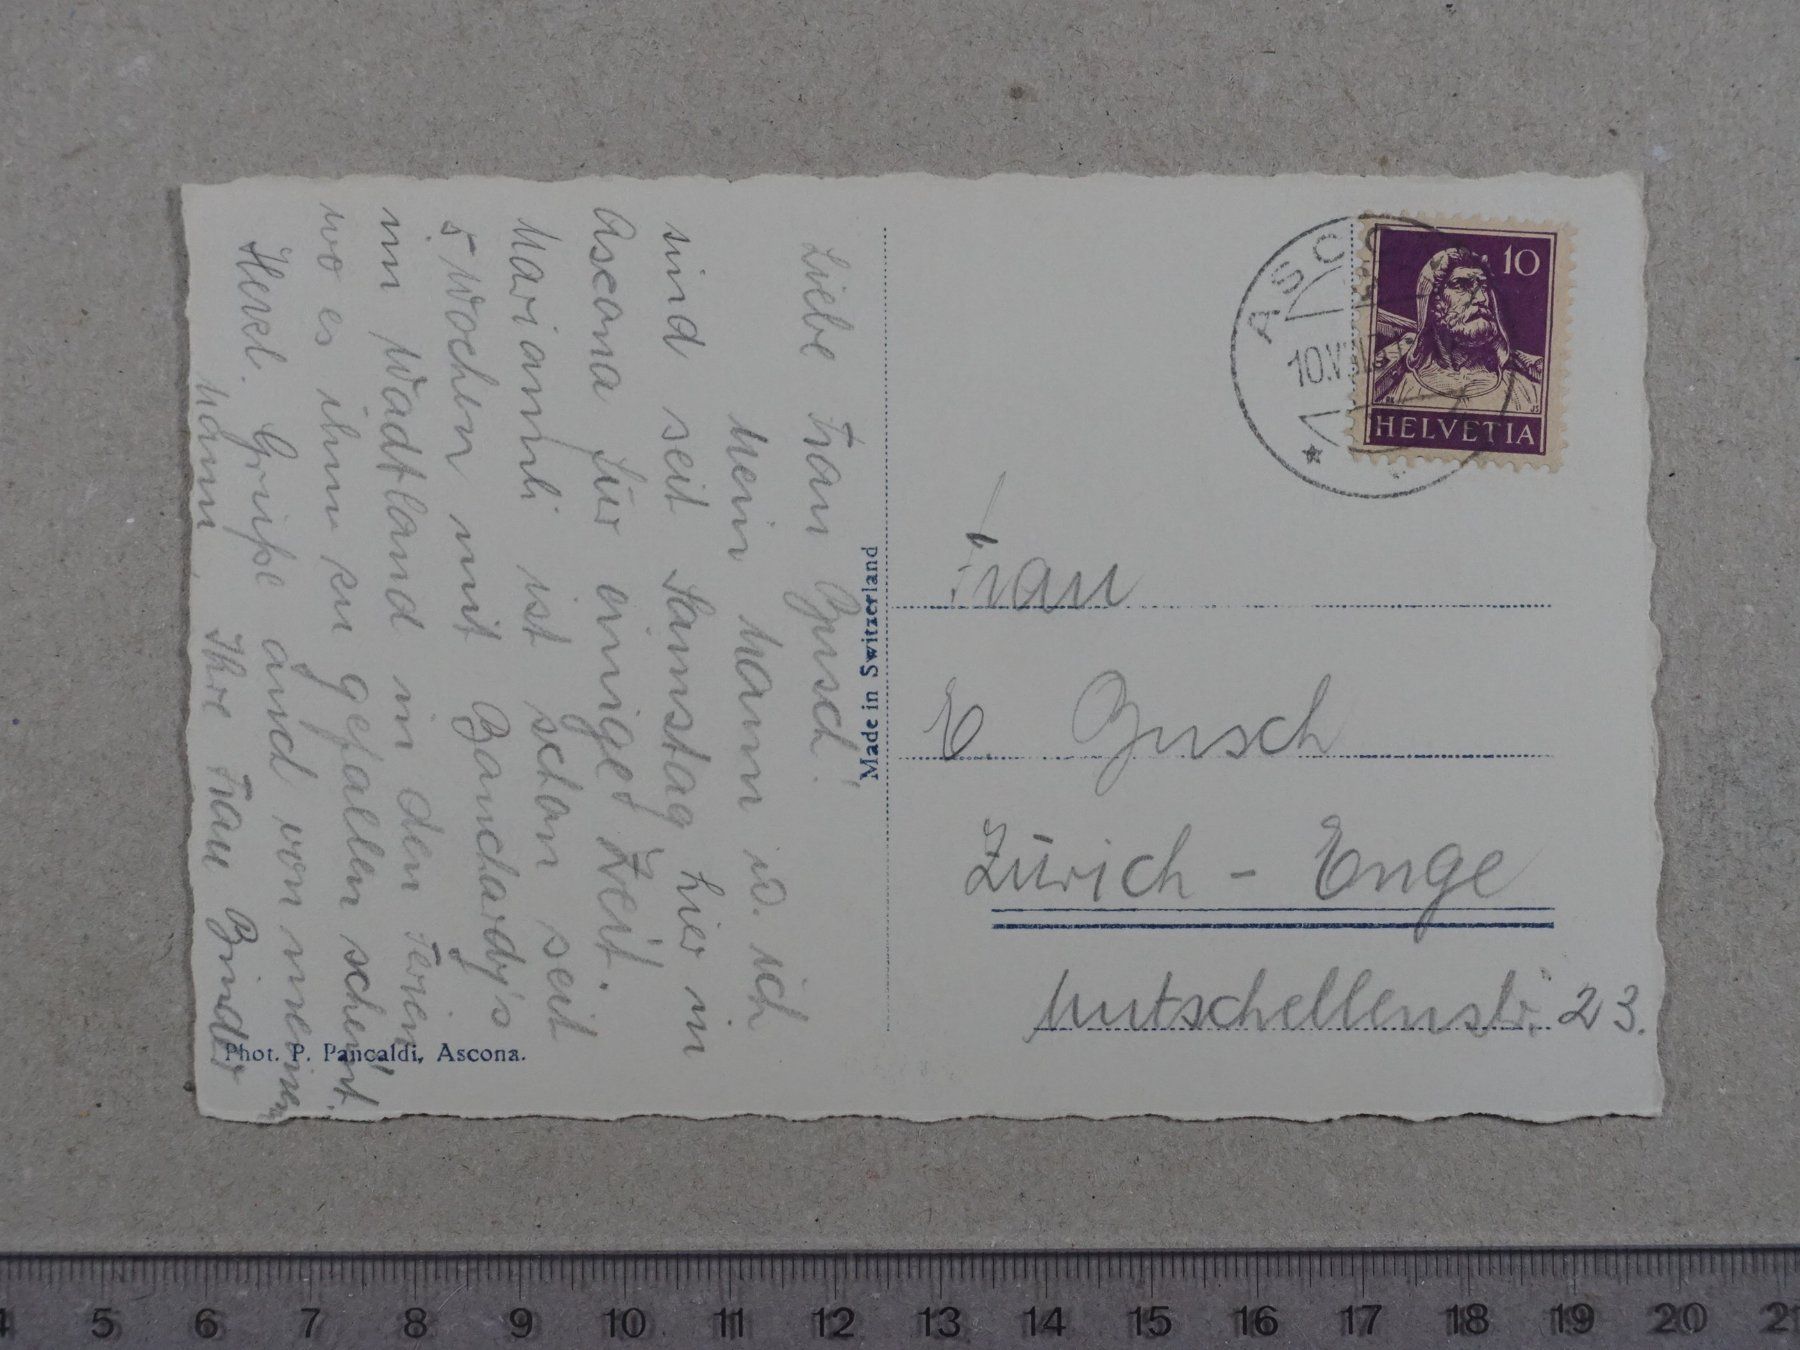 Liebe Frau Gusch!
Mein Mann u. ich
sind seit Samstag hier in
Ascona für einige Zeit.
Marianli ist schon seit
5 Wochen mit
im Wadtland in den Ferien
wo es ihm zu gefallen scheint.
Herzl. Grüße auch von meinem
Mann, Ihre Frau Binder
Made in Switzerland
Phot. P. Pancaldi, Ascona.
10
HELVETIA
Frau
E. Gusch
Zürich - Enge
Mutschellenstr. 23.
4 5 6 7 8 9 10 11 12 13 14 15 16 17 18 19 20 21